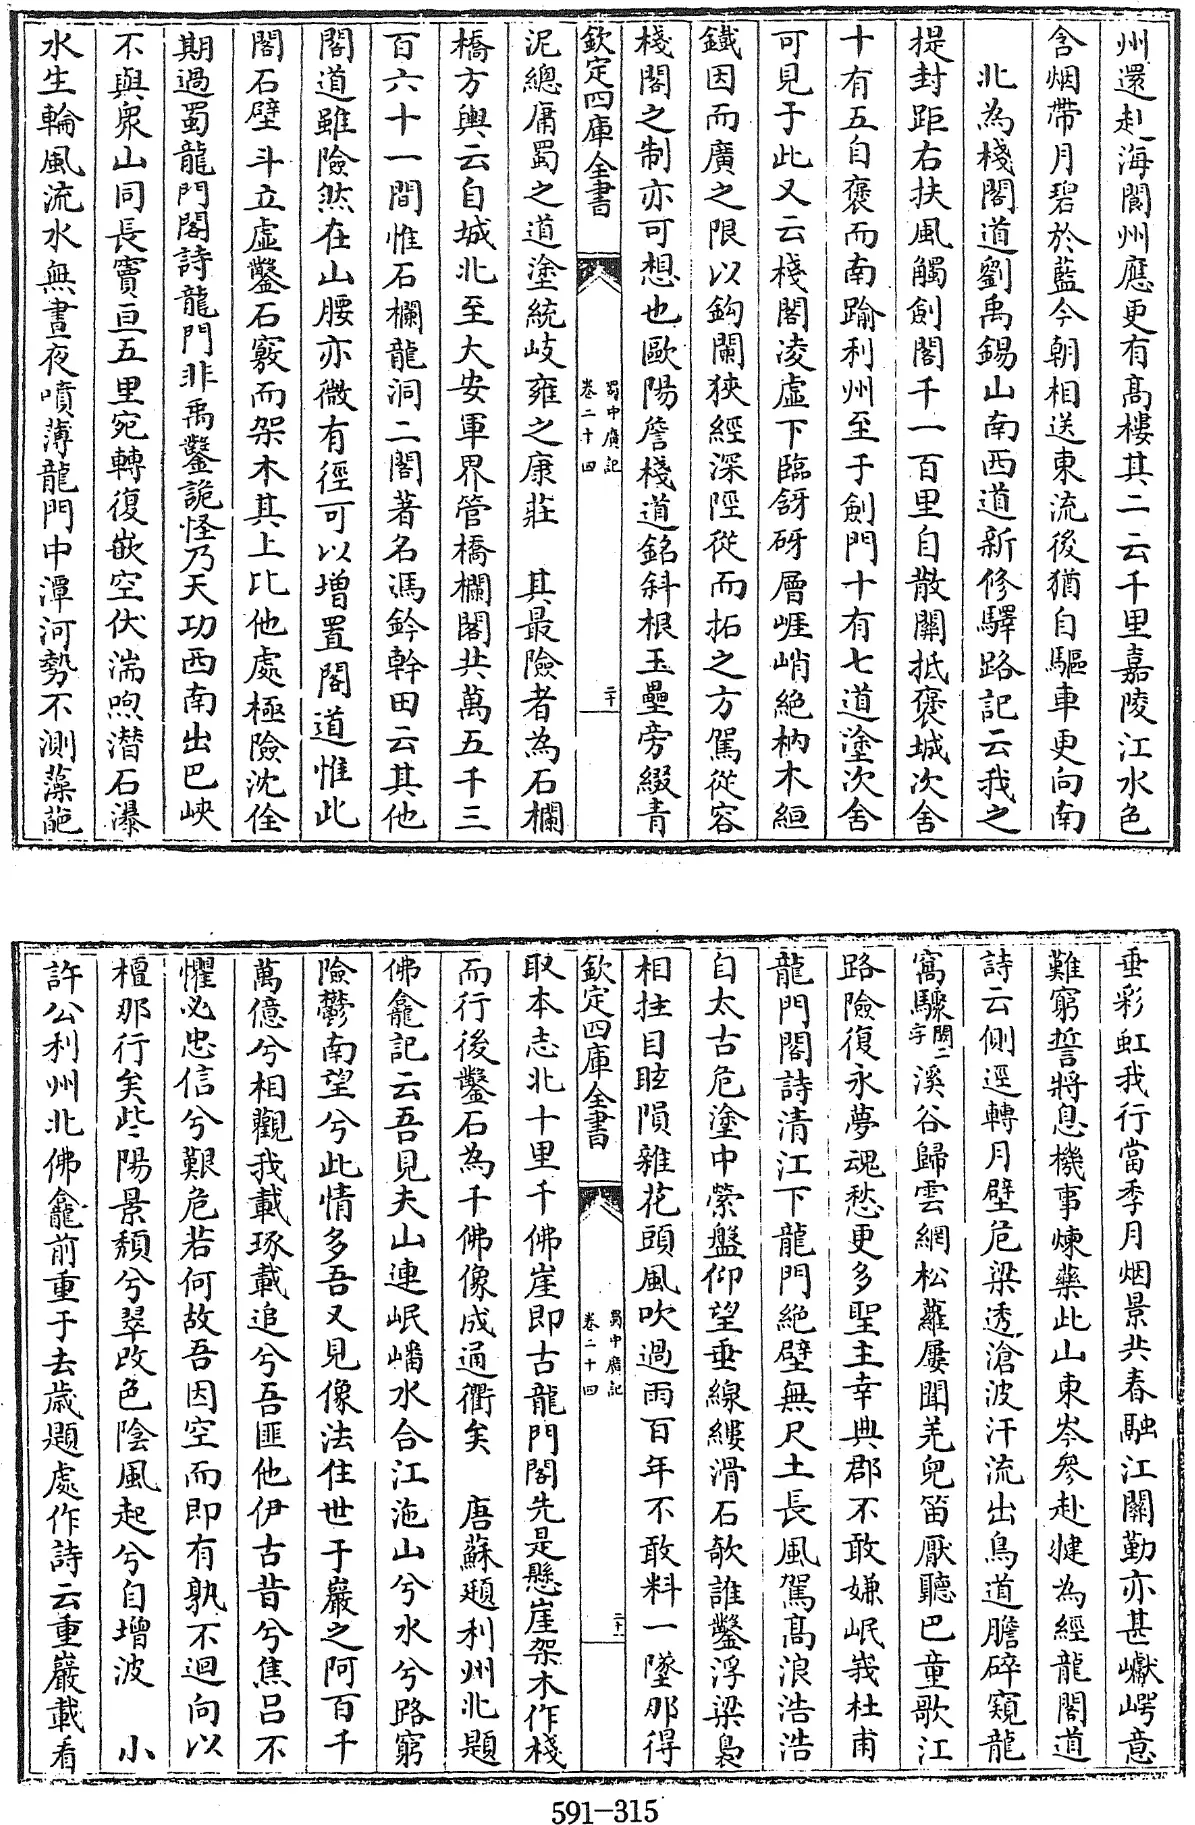 州還赴海閬州應更有髙樓其二云千里嘉陵江水色
含烟帶月碧於藍今朝相送東流後猶自驅車更向南
北為棧閣道劉禹錫山南西道新修驛路記云我之
提封距右扶風觸劍閣千一百里自散關抵褒城次舍
十有五自褒而南踰利州至于劍門十有七道塗次舍
可見于此又云棧閣凌虛下臨谽砑層崖峭絶枘木絙
鐵因而廣之限以鈎闌狹經深陘從而拓之方駕從容
棧閣之制亦可想也歐陽詹棧道銘斜根玉壘旁綴青
欽定四庫全書
蜀中廣記
卷二十四
二十
泥總庸蜀之道塗統岐雍之康莊 其最險者為石欄
橋方輿云自城北至大安軍界管橋欄閣共萬五千三
百六十一間惟石欄龍洞二閣著名馮鈐幹田云其他
閣道雖險然在山腰亦微有徑可以增置閣道惟此
閣石壁斗立虛鑿石竅而架木其上比他處極險沈佺
期過蜀龍門閣詩龍門非禹鑿詭怪乃天功西南出巴峽
不與衆山同長竇亘五里宛轉復嵌空伏湍喣潛石瀑
水生輪風流水無晝夜噴薄龍門中潭河勢不測藻葩
垂彩虹我行當季月烟景共春融江關勤亦甚巘崿意
難窮誓將息機事煉藥此山東岑參赴犍為經龍閣道
詩云側逕轉月壁危梁透滄波汗流出鳥道膽碎窺龍
窩驟闕二字溪谷歸雲網松蘿屢聞羌兒笛厭聽巴童歌江
路險復永夢魂愁更多聖主幸典郡不敢嫌岷峩杜甫
龍門閣詩清江下龍門絶壁無尺土長風駕髙浪浩浩
自太古危塗中縈盤仰望垂線縷滑石欹誰鑿浮梁裊
相拄目眩隕雜花頭風吹過雨百年不敢料一墜那得
欽定四庫全書
蜀中廣記
卷二十四
二十一
取本志北十里千佛崖即古龍門閣先是懸崖架木作棧
而行後鑿石為千佛像成通衢矣 唐蘇頲利州北題
佛龕記云吾見夫山連岷嶓水合江沲山兮水兮路窮
險鬱南望兮此情多吾又見像法住世于巖之阿百千
萬億兮相觀我載琢載追兮吾匪他伊古昔兮焦吕不
懼必忠信兮艱危若何故吾因空而即有孰不迴向以
檀那行矣些陽景頹兮翠改色陰風起兮自增波 小
許公利州北佛龕前重于去歲題處作詩云重巖載看